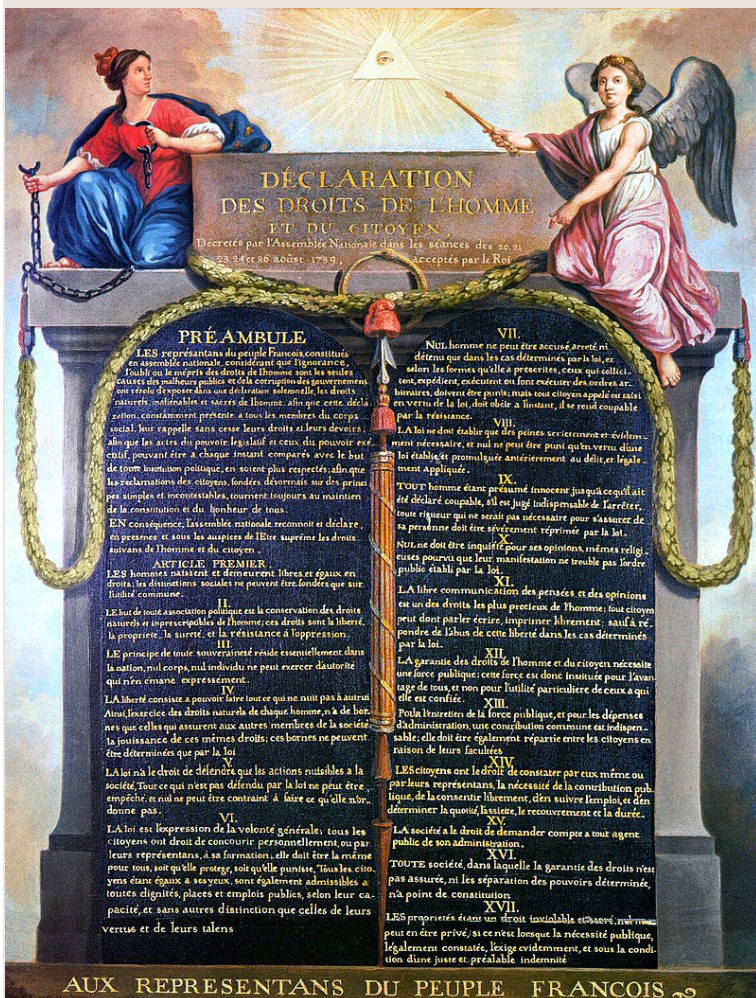 DÉCLARATION
DES DROITS DE L'HOMME
ET DU CITOYEN,
Décretés par l'Assemblée Nationale dans les séances des 20, 21
23, 24 et 26 août 1789, acceptés par le Roi
PRÉAMBULE
LES représantans du peuple Francois, constitués
en assemblée nationale, considérant que l'ignorance,
l'oubli ou le mépris des droits de l'homme sont les seules
causes des malheurs publics et de la corruption des gouvernemens
ont résolu d'exposer dans une déclaration solemnelle, les droits
naturels, inaliénables et sacrés de l'homme; afin que cette décla-
ration, constamment présente a tous les membres du corps
social, leur rappelle sans cesse leurs droits et leurs devoirs;
afin que les actes du pouvoir legislatif et ceux du pouvoir exé-
cutif, pouvant être a chaque instant comparés avec le but
de toute institution politique, en soient plus respectés; afin que
les reclamations des citoyens, fondées désormais sur des prin-
pes simples et incontestables, tournent toujours au maintien
de la constitution et du bonheur de tous.
EN conséquence, l'assemblée nationale reconnoit et déclare,
en presence et sous les auspices de l'Etre suprême les droits
suivans de l'homme et du citoyen.
ARTICLE PREMIER.
LES hommes naissent et demeurent libres et égaux en
droits; les distinctions sociales ne peuvent être fondées que sur
l'utilité commune.
II.
LE but de toute association politique est la conservation des droits
naturels et inprescriptibles de l'homme; ces droits sont la liberté,
la propriété, la sureté, et la résistance à l'oppression.
III.
LE principe de toute souveraineté réside essentiellement dans
la nation, nul corps, nul individu ne peut exercer d'autorité
qui n'en émane expressement.
IV
LA liberté consiste a pouvoir faire tout ce qui ne nuit pas à autrui
Ainsi, l'exercice des droits naturels de chaque homme, n'a de bor-
nes que celles qui assurent aux autres membres de la société
la jouissance de ces mêmes droits; ces bornes ne peuvent
être déterminées que par la loi
V.
LA loi n'a le droit de défendre que les actions nuisibles a la
société. Tout ce qui n'est pas défendu par la loi ne peut être
empêché, et nul ne peut être contraint à faire ce qu'elle n'or-
donne pas.
VI.
LA loi est l'expression de la volonté générale; tous les
citoyens ont droit de concourir personnellement, ou par
leurs représentans, à sa formation; elle doit être la même
pour tous, soit qu'elle protege, soit qu'elle punisse, Tous les cito-
yens étant égaux a ses yeux, sont également admissibles à
toutes dignités, places et emplois publics, selon leur ca-
pacité, et sans autres distinction que celles de leurs
vertus et de leurs talens
VII.
NUL homme ne peut être accusé, arreté, ni
détenu que dans les cas déterminés par la loi, et
selon les formes qu'elle a prescrites, ceux qui sollici-
tent, expédient, exécutent ou font exécuter des ordres ar-
bitraires, doivent être punis; mais tout citoyen appelé ou saisi
en vertu de la loi, doit obéir a l'instant, il se rend coupable
par la résistance.
VIII.
LA loi ne doit établir que des peines strictement et évidem-
ment nécessaire, et nul ne peut être puni qu'en vertu d'une
loi établie et promulguée antérierement au délit, et légale-
ment appliquée.
IX.
TOUT homme étant présumé innocent jusqu'a ce qu'il ait
été déclaré coupable, s'il est jugé indispensable de l'arrêter,
toute rigueur qui ne serait pas nécessaire pour s'assurer de
sa personne doit être sévèrement réprimée par la loi.
X.
NUL ne doit être inquiété pour ses opinions, mêmes religi-
euses pourvu que leur manifestation ne trouble pas l'ordre
public établi par la loi.
XI.
LA libre communication des pensées et des opinions
est un des droits les plus precieux de l'homme; tout citoyen
peut dont parler écrire, imprimer librement; sauf a ré-
pondre de l'abus de cette liberté dans les cas déterminés
par la loi.
XII.
LA garantie des droits de l'homme et du citoyen nécessite
une force publique; cette force est donc instituée pour l'avan-
tage de tous, et non pour l'utilité particuliere de ceux a qui
elle est confiée.
XIII.
Pour l'entretien de la force publique, et pour les dépenses
d'administration, une contribution commune est indispen-
sable; elle doit être également répartie entre les citoyens en
raison de leurs facultées
XIV.
LES citoyens ont le droit de constater par eux même ou
par leurs représentans, la nécessité de la contribution pub-
lique, de la consentir librement, d'en suivre l'emploi, et d'en
déterminer la quotité, l'assiette, le recouvrement et la durée.
XV.
LA société a le droit de demander compte a tout agent
public de son administration.
XVI.
TOUTE société, dans laquelle la garantie des droits n'est
pas assurée, ni les séparation des pouvoirs déterminée,
n'a point de constitution
XVII.
LES proprietés étant un droit inviolable et sacré, nul ne
peut en être privé, si ce n'est lorsque la nécessité publique,
légalement constatée, l'exige evidemment, et sous la condi-
tion d'une juste et préalable indemnité
AUX REPRESENTANS DU PEUPLE FRANCOIS